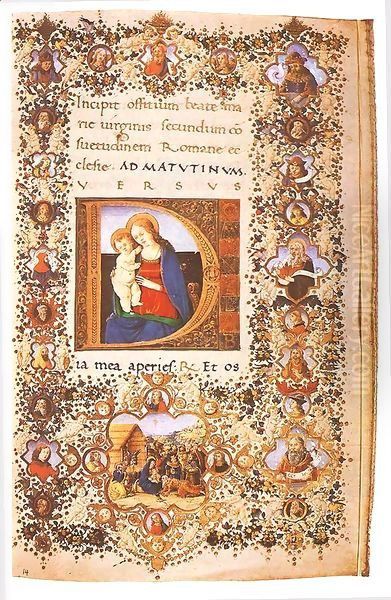 Incipit offitium beate ma
rie virginis secundum co
suetudinem Romane ec
clesie. AD MATUTINUM.
VERSUS
D
ia mea aperies. R Et os
14